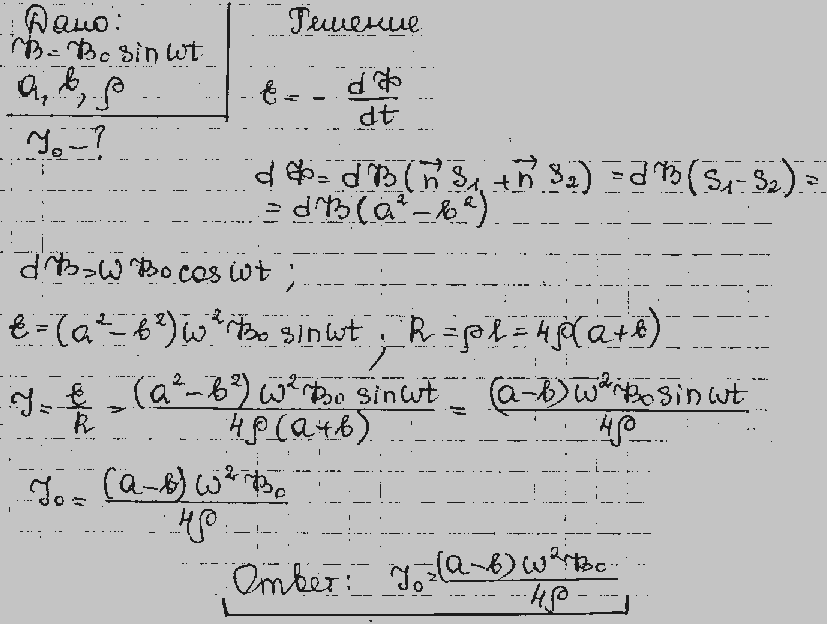 Дано:
B = B₀ sin ωt
a, b, ρ
J₀ - ?
Решение
ε = - dФ/dt
dФ = dB(n⃗ S₁ + n⃗ S₂) = dB(S₁ - S₂) =
= dB(a² - b²)
dB = ω B₀ cos ωt ;
ε = (a² - b²) ω² B₀ sin ωt ; R = ρl = 4ρ(a+b)
J = ε/R = (a² - b²) ω² B₀ sin ωt / 4ρ(a+b) = (a-b) ω² B₀ sin ωt / 4ρ
J₀ = (a-b) ω² B₀ / 4ρ
Ответ: J₀ = (a-b) ω² B₀ / 4ρ